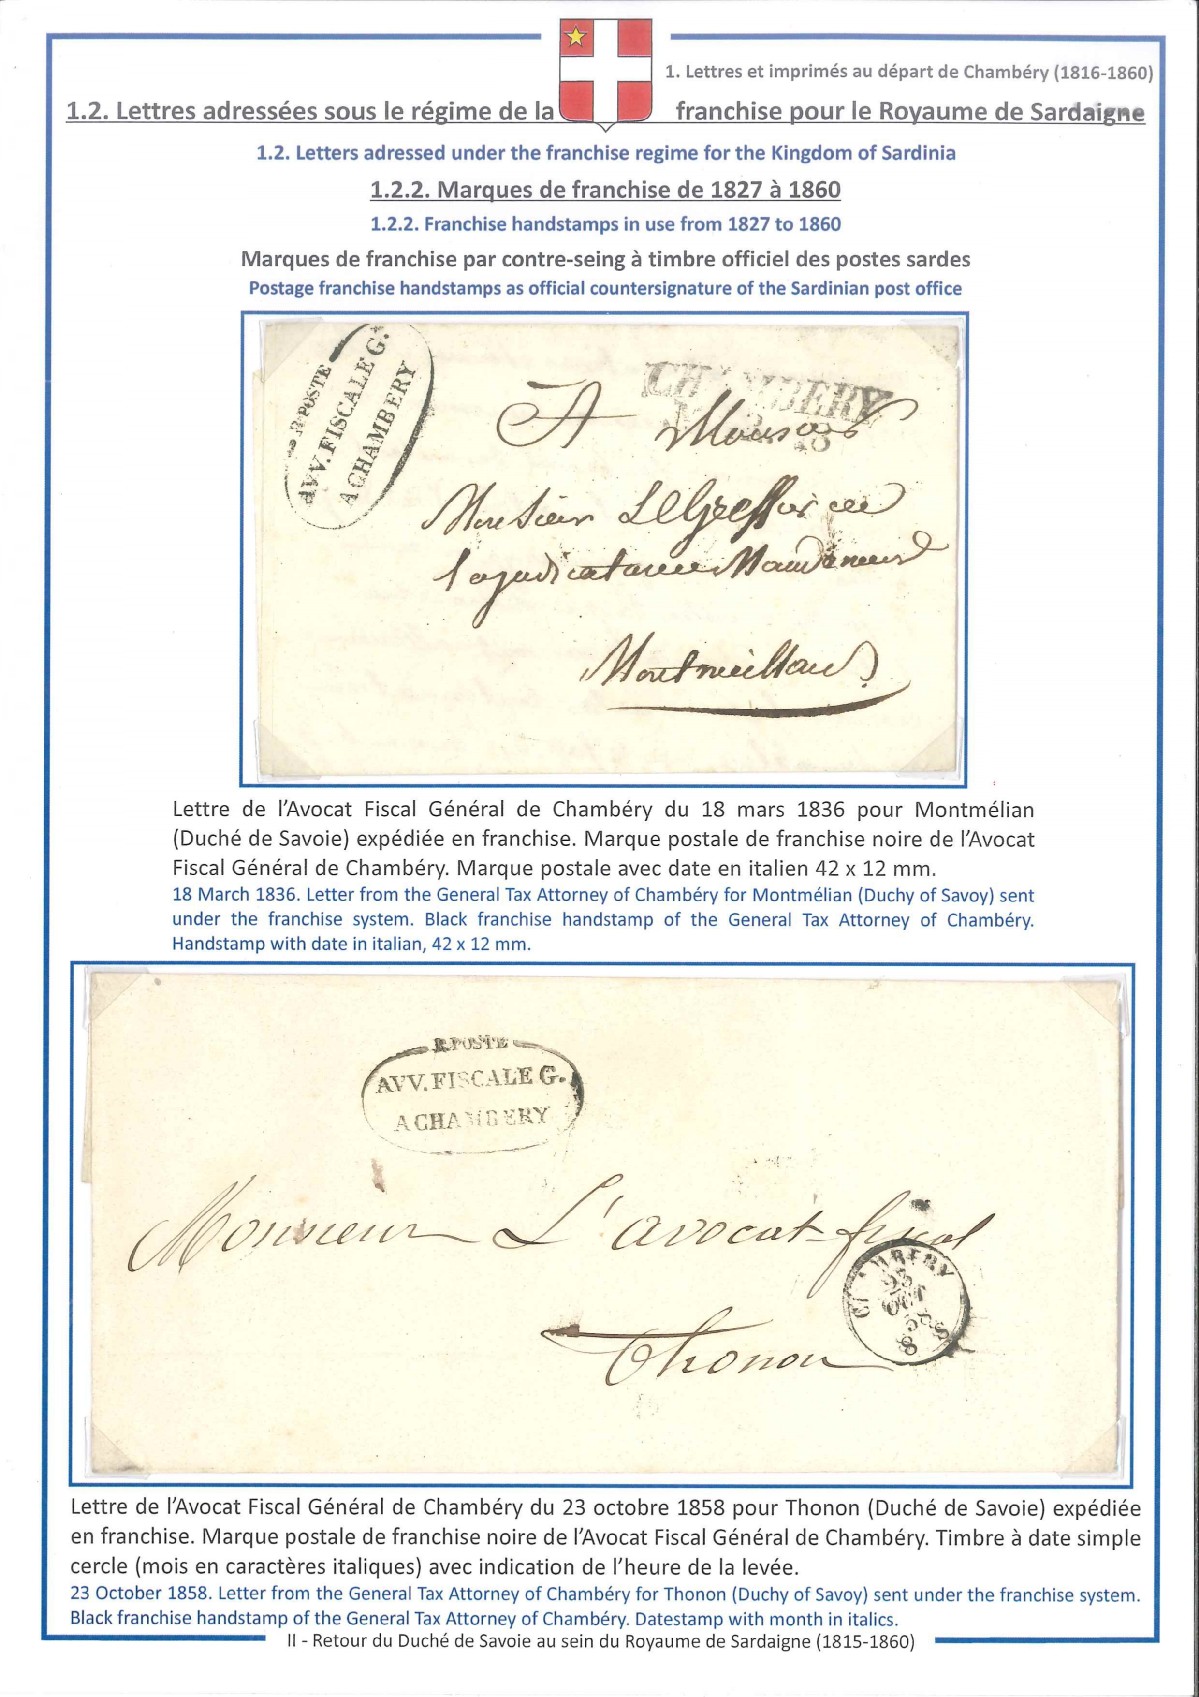 1. Lettres et imprimés au départ de Chambéry (1816-1860)
1.2. Lettres adressées sous le régime de la franchise pour le Royaume de Sardaigne
1.2. Letters adressed under the franchise regime for the Kingdom of Sardinia
1.2.2. Marques de franchise de 1827 à 1860
1.2.2. Franchise handstamps in use from 1827 to 1860
Marques de franchise par contre-seing à timbre officiel des postes sardes
Postage franchise handstamps as official countersignature of the Sardinian post office
R. POSTE
AVV. FISCALE G.
A CHAMBERY
CHAMBERY
18
A
Monsieur Le Greffier
Lettre de l'Avocat Fiscal Général de Chambéry du 18 mars 1836 pour Montmélian
(Duché de Savoie) expédiée en franchise. Marque postale de franchise noire de l'Avocat
Fiscal Général de Chambéry. Marque postale avec date en italien 42 x 12 mm.
18 March 1836. Letter from the General Tax Attorney of Chambéry for Montmélian (Duchy of Savoy) sent
under the franchise system. Black franchise handstamp of the General Tax Attorney of Chambéry.
Handstamp with date in italian, 42 x 12 mm.
R. POSTE
AVV. FISCALE G.
A CHAMBERY
Monsieur L'avocat-fiscal
CHAMBERY
23
OCT
58
8 S
Thonon
Lettre de l'Avocat Fiscal Général de Chambéry du 23 octobre 1858 pour Thonon (Duché de Savoie) expédiée
en franchise. Marque postale de franchise noire de l'Avocat Fiscal Général de Chambéry. Timbre à date simple
cercle (mois en caractères italiques) avec indication de l'heure de la levée.
23 October 1858. Letter from the General Tax Attorney of Chambéry for Thonon (Duchy of Savoy) sent under the franchise system.
Black franchise handstamp of the General Tax Attorney of Chambéry. Datestamp with month in italics.
II - Retour du Duché de Savoie au sein du Royaume de Sardaigne (1815-1860)